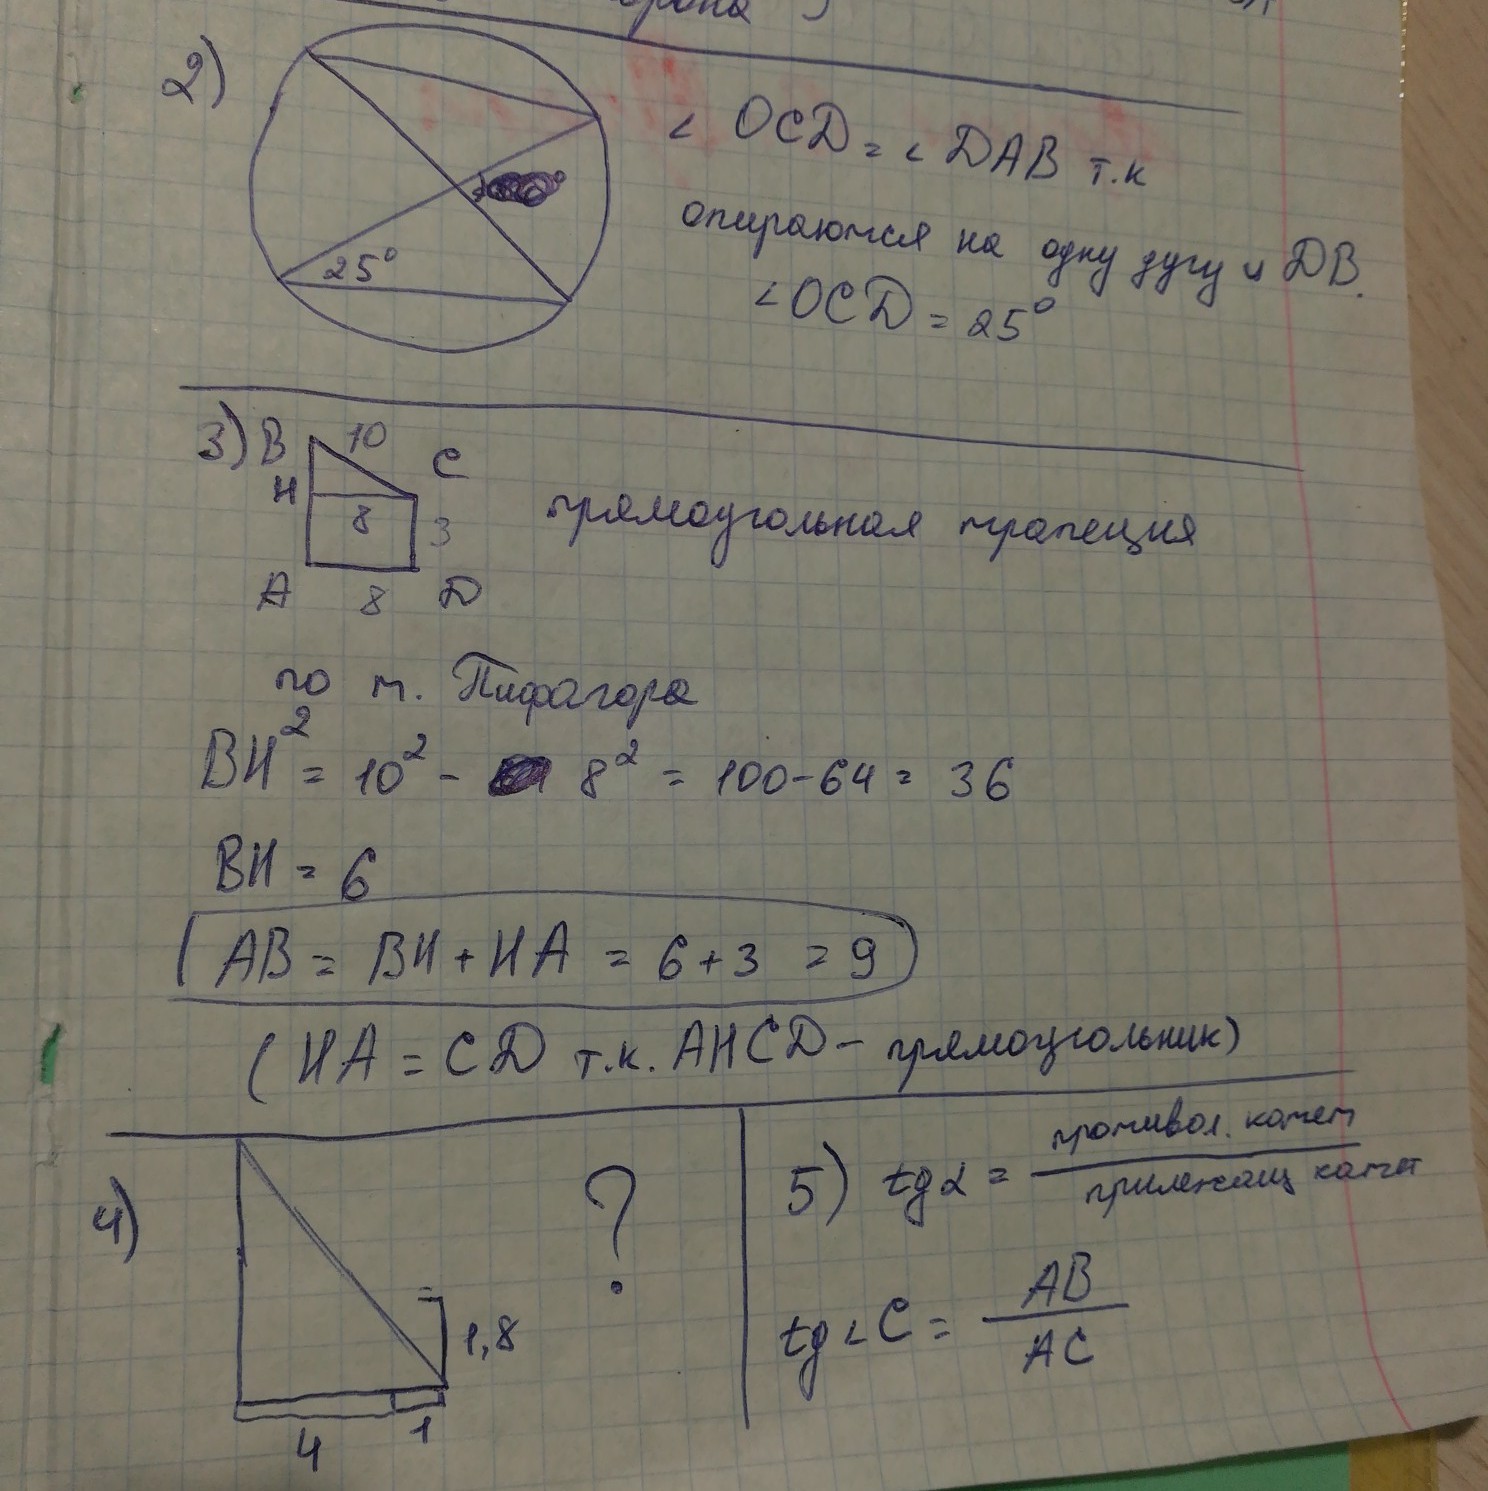 2)
25°
∠ OCD = ∠ DAB т.к
опираются на одну дугу и DB.
∠OCD = 25°
3) B 10 C
H 8 3
A 8 D
прямоугольная трапеция
по т. Пифагора
BH² = 10² - 8² = 100-64 = 36
BH = 6
AB = BH + HA = 6 + 3 = 9
( HA = CD т.к. AHCD - прямоугольник)
4) ?
1,8
4 1
5) tgα = противол. катет / прилежащ катет
tg∠C = AB / AC